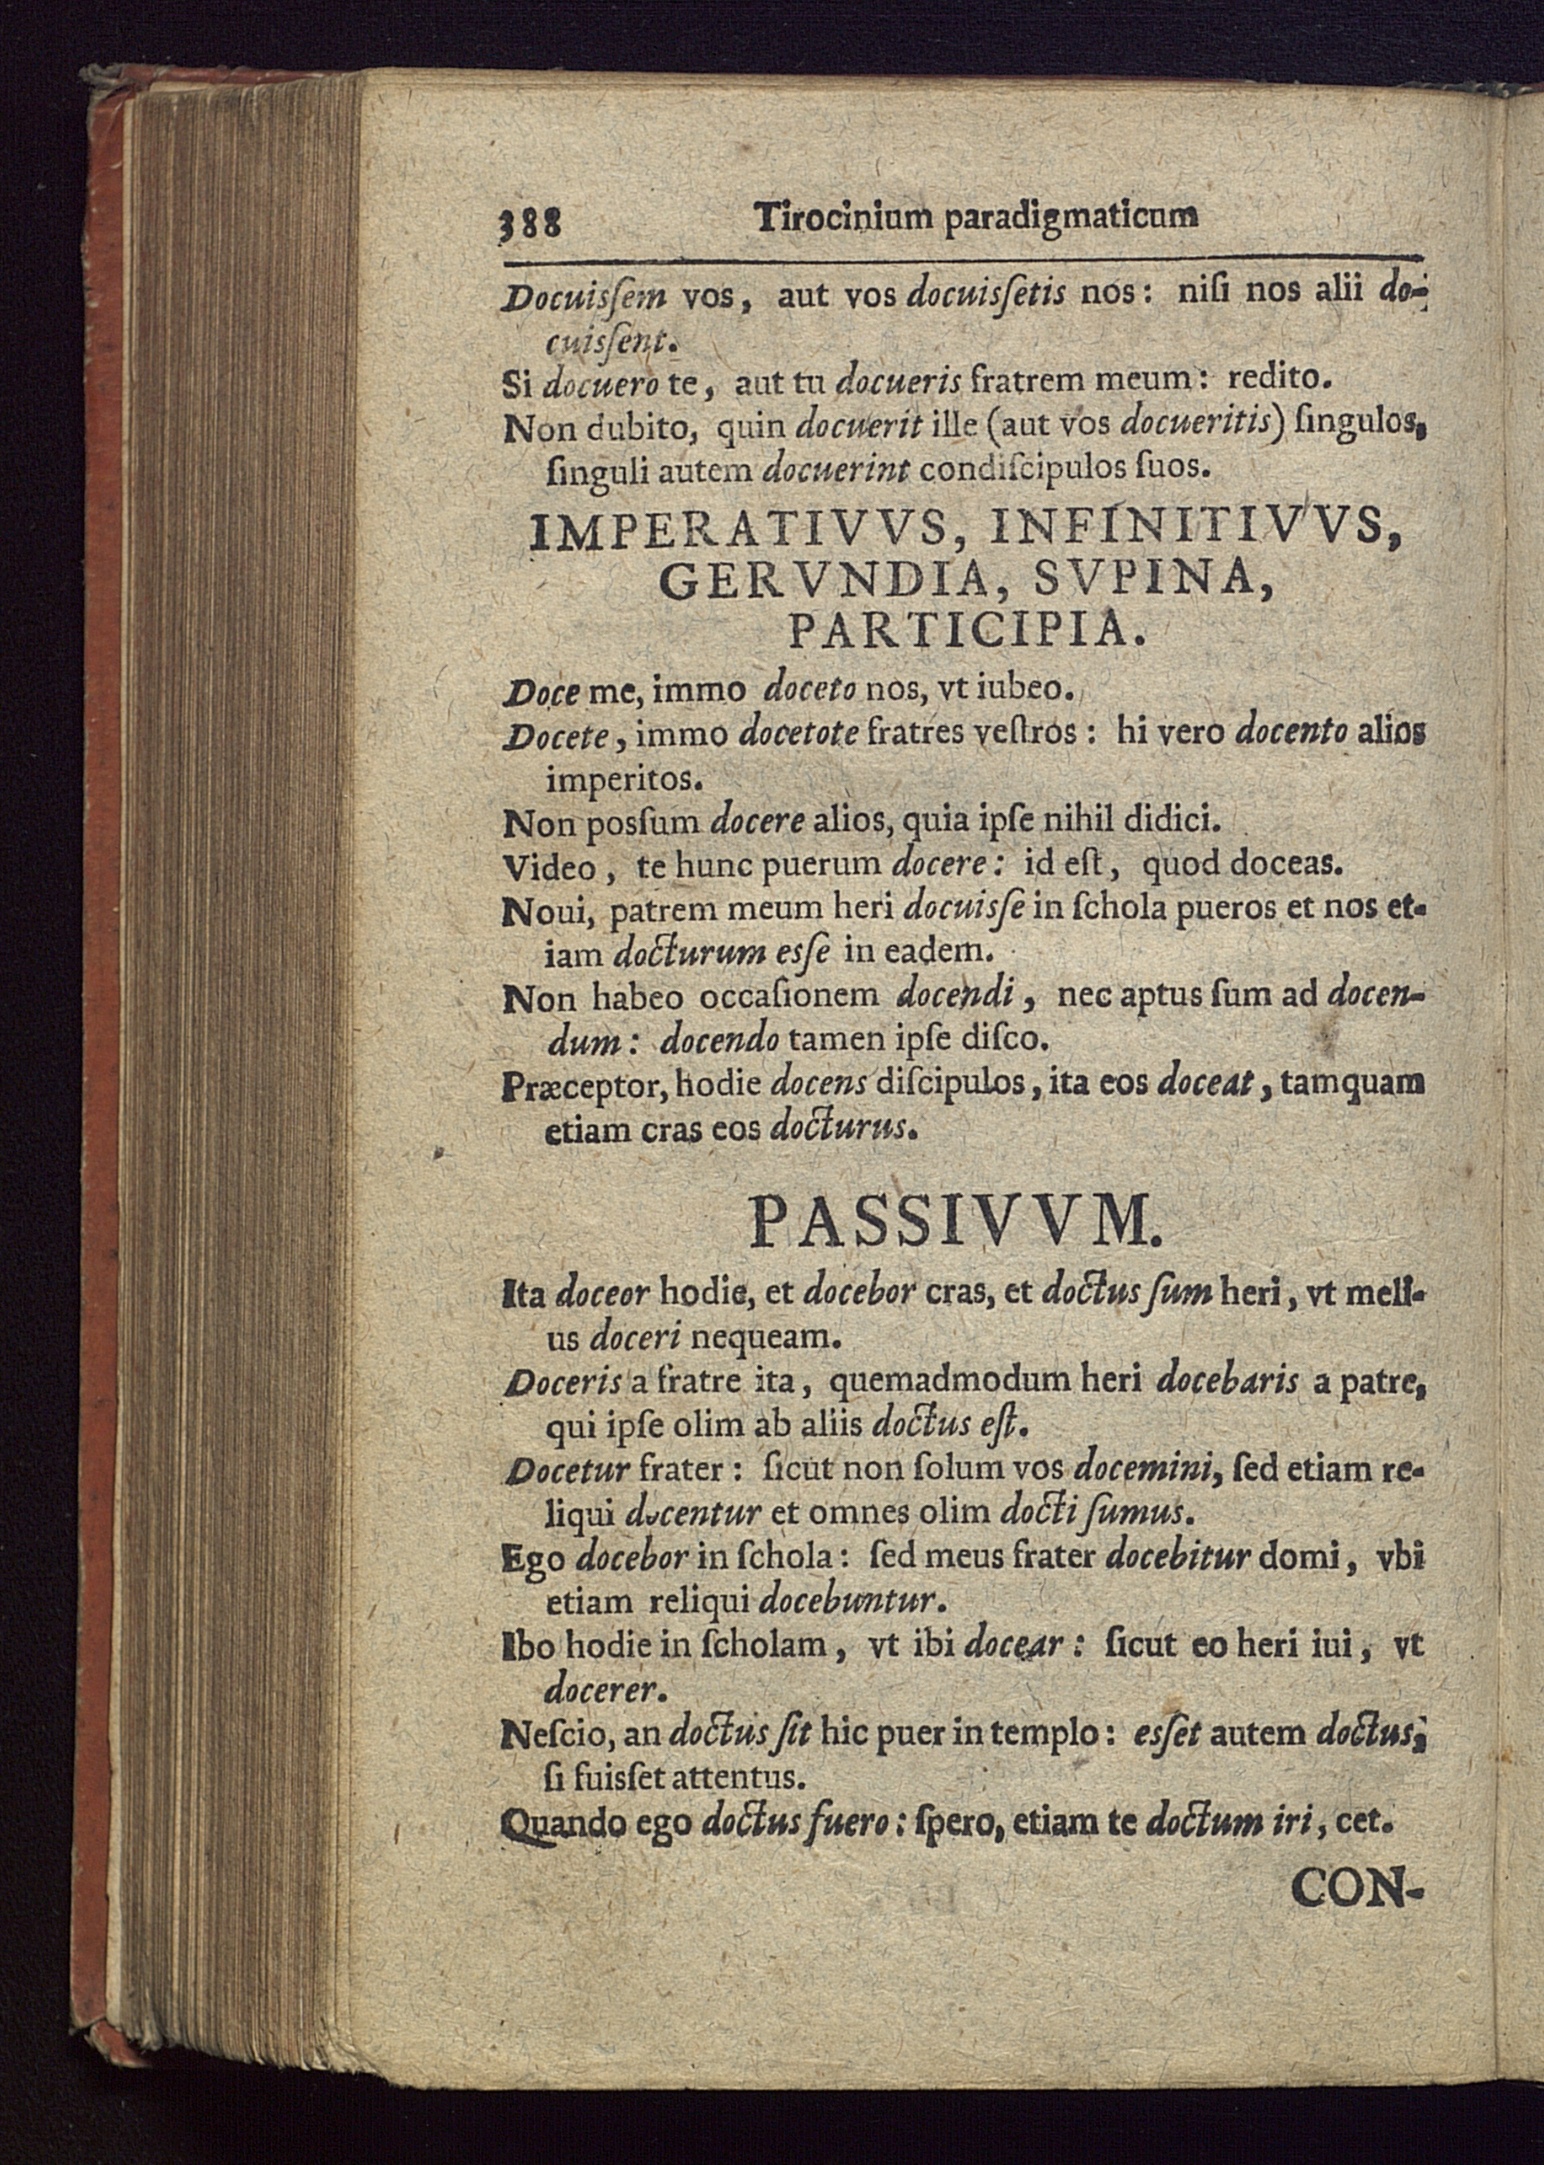 388 Tirocinium paradigmaticum
Docuisſem vos, aut vos docuisſetis nos: niſi nos alii do-
cuisſent.
Si docuero te, aut tu docueris fratrem meum: redito.
Non dubito, quin docuerit ille (aut vos docueritis) ſingulos,
ſinguli autem docuerint condiſcipulos ſuos.
IMPERATIVVS, INFINITIVVS,
GERVNDIA, SVPINA,
PARTICIPIA.
Doce me, immo doceto nos, vt iubeo.
Docete, immo docetote fratres veſtros: hi vero docento alios
imperitos.
Non posſum docere alios, quia ipſe nihil didici.
Video, te hunc puerum docere: id eſt, quod doceas.
Noui, patrem meum heri docuisſe in ſchola pueros et nos et-
iam docturum esſe in eadem.
Non habeo occaſionem docendi, nec aptus ſum ad docen-
dum: docendo tamen ipſe diſco.
Præceptor, hodie docens diſcipulos, ita eos doceat, tamquam
etiam cras eos docturus.
PASSIVVM.
Ita doceor hodie, et docebor cras, et doctus ſum heri, vt meli-
us doceri nequeam.
Doceris a fratre ita, quemadmodum heri docebaris a patre,
qui ipſe olim ab aliis doctus eſt.
Docetur frater: ſicut non ſolum vos docemini, ſed etiam re-
liqui docentur et omnes olim docti ſumus.
Ego docebor in ſchola: ſed meus frater docebitur domi, vbi
etiam reliqui docebuntur.
Ibo hodie in ſcholam, vt ibi docear: ſicut eo heri iui, vt
docerer.
Neſcio, an doctus ſit hic puer in templo: esſet autem doctus,
ſi fuisſet attentus.
Quando ego doctus fuero: ſpero, etiam te doctum iri, cet.
CON-